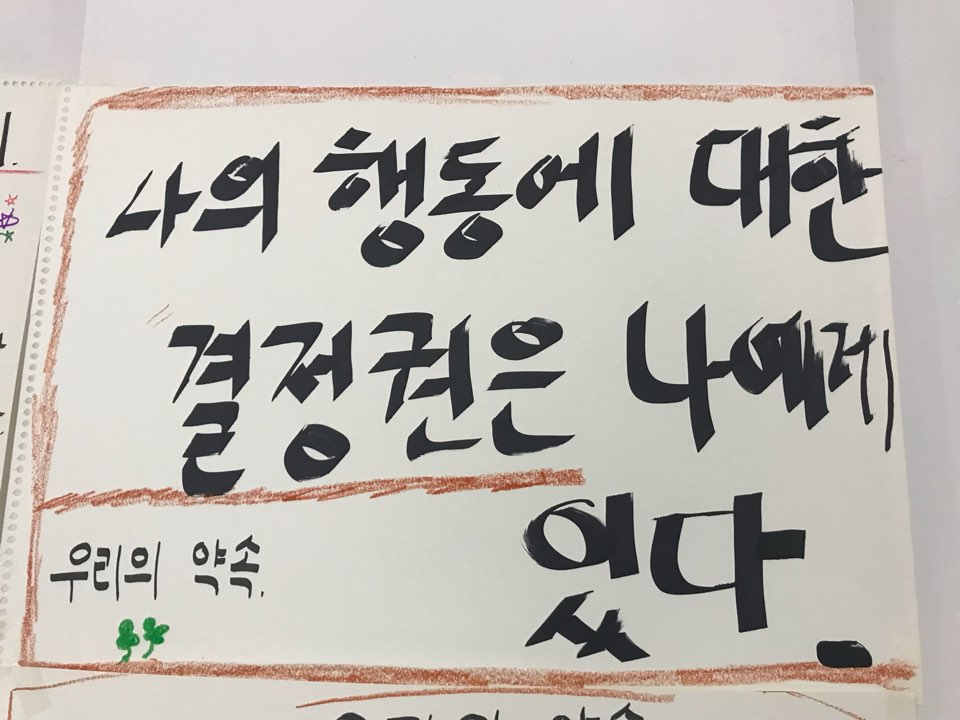 나의 행동에 대한
결정권은 나에게
있다.
우리의 약속.